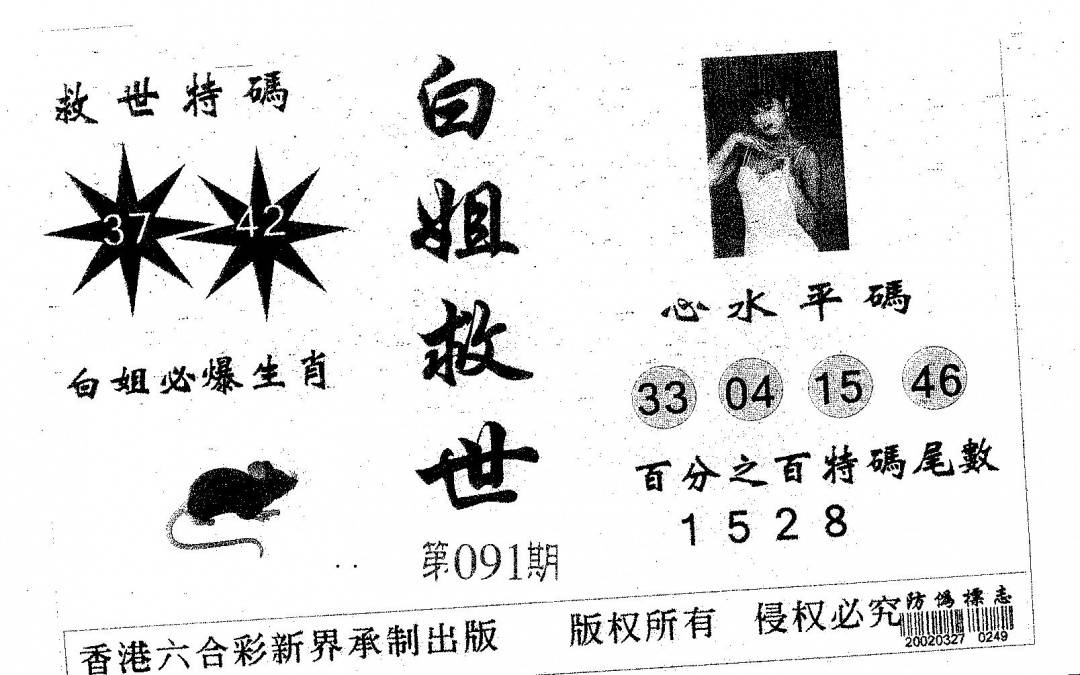 救世特碼
37
42
白姐必爆生肖
白姐救世
第091期
心水平碼
33 04 15 46
百分之百特碼尾數
1 5 2 8
香港六合彩新界承制出版 版权所有 侵权必究
防偽標志
20020327 0249